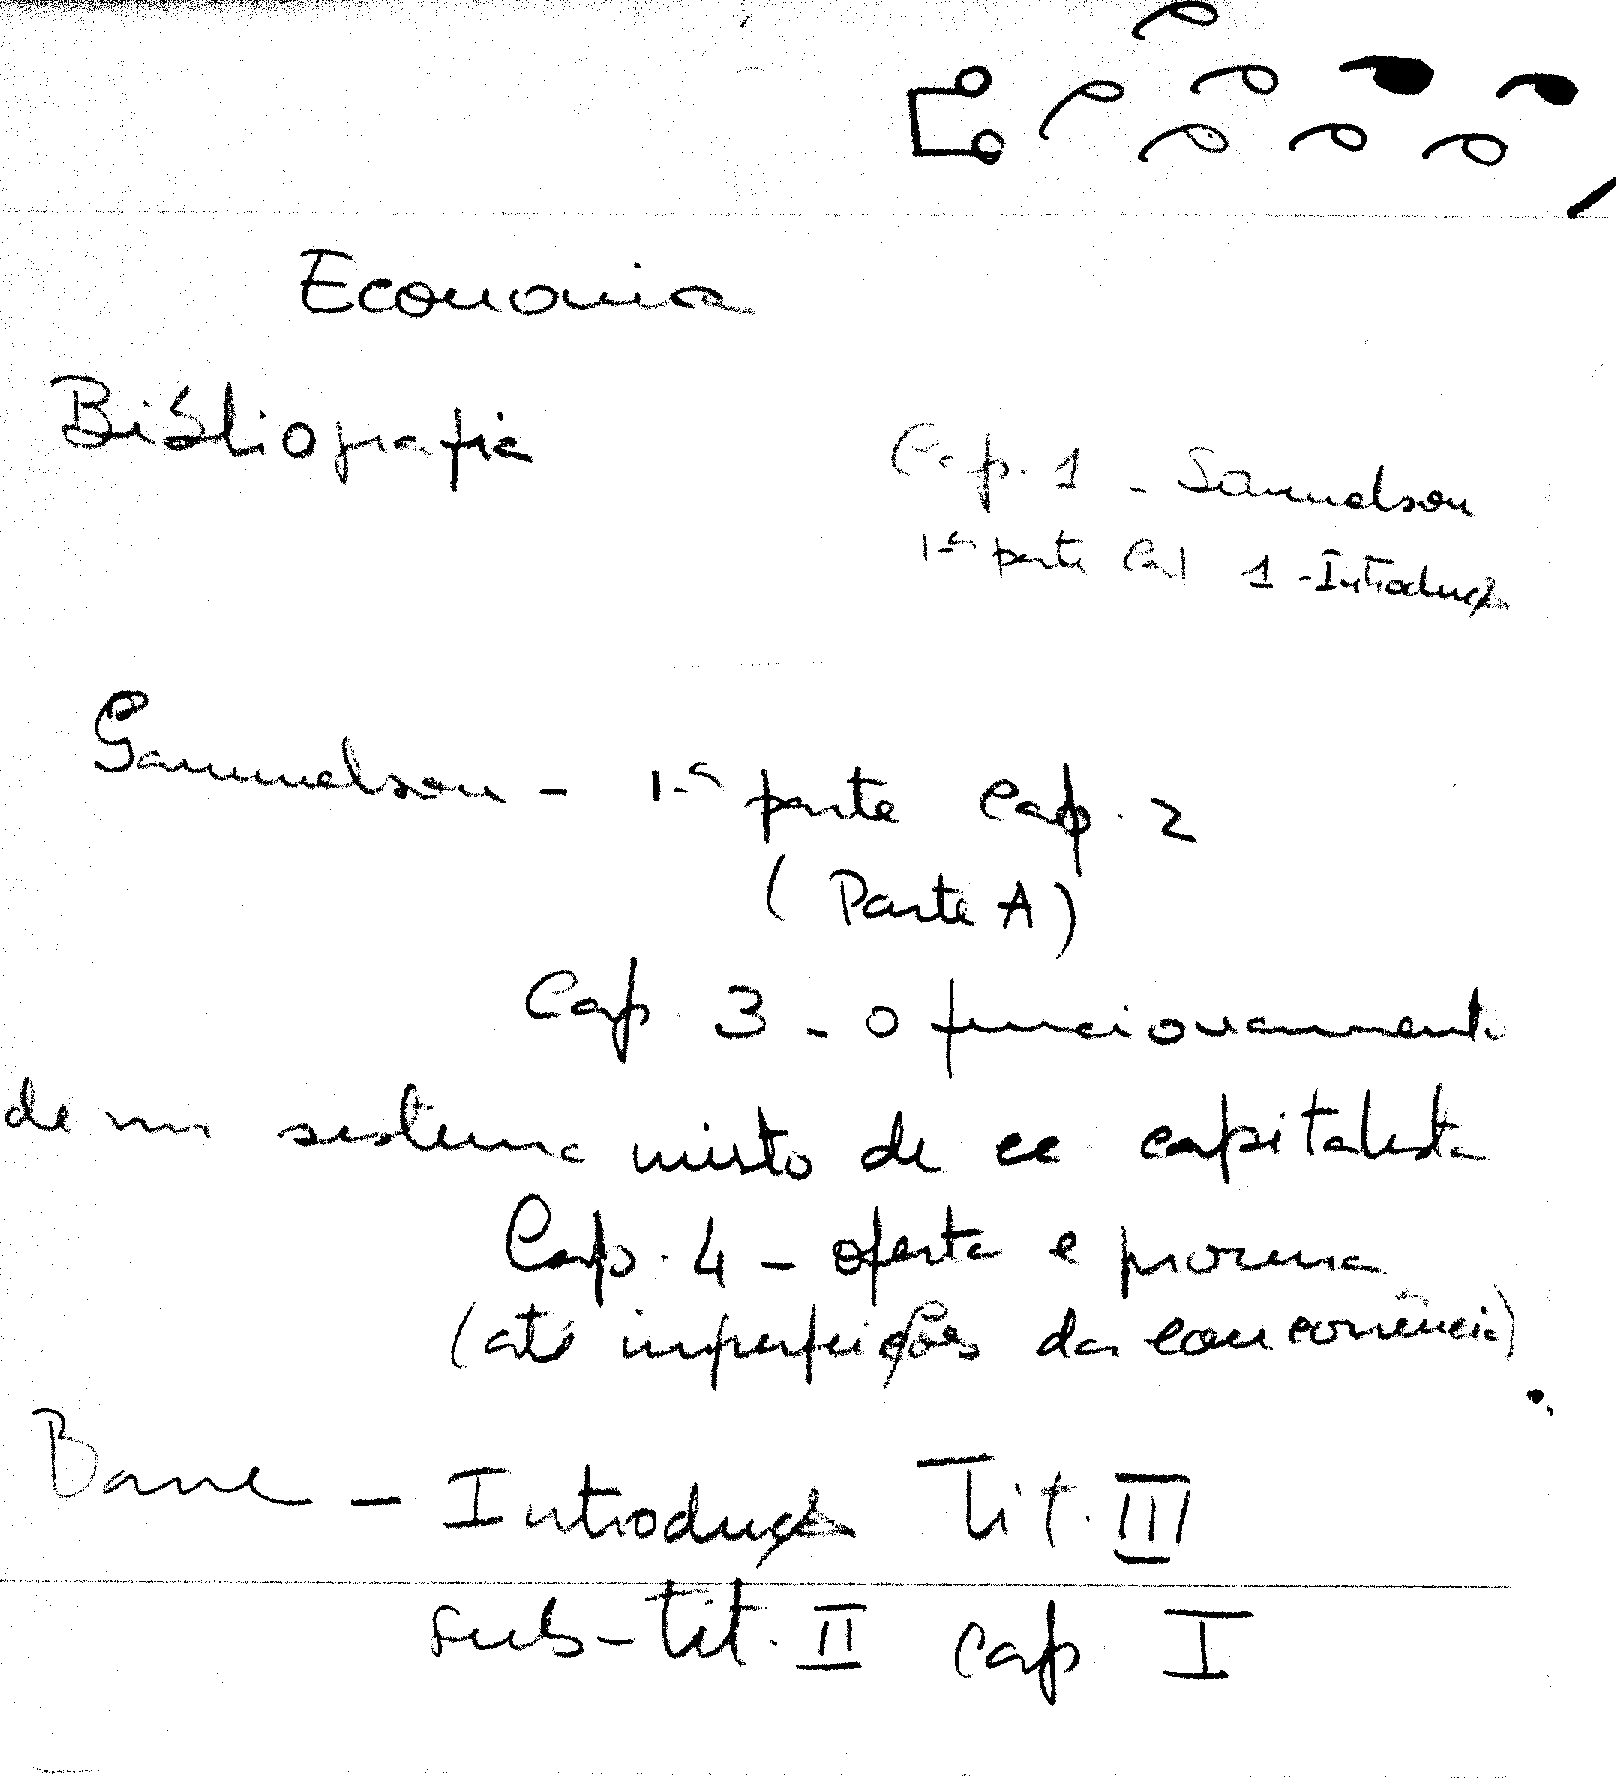 Economia
Bibliografia
Cap. 1 - Samuelson
1.ª parte Cap 1 - Introdução
Samuelson - 1.ª parte Cap. 2
(Parte A)
Cap. 3 - O funcionamento
de um sistema misto de ec capitalista
Cap. 4 - oferta e procura
(até imperfeições da concorrência)
Barre - Introdução Tit. III
sub-tit. II cap I